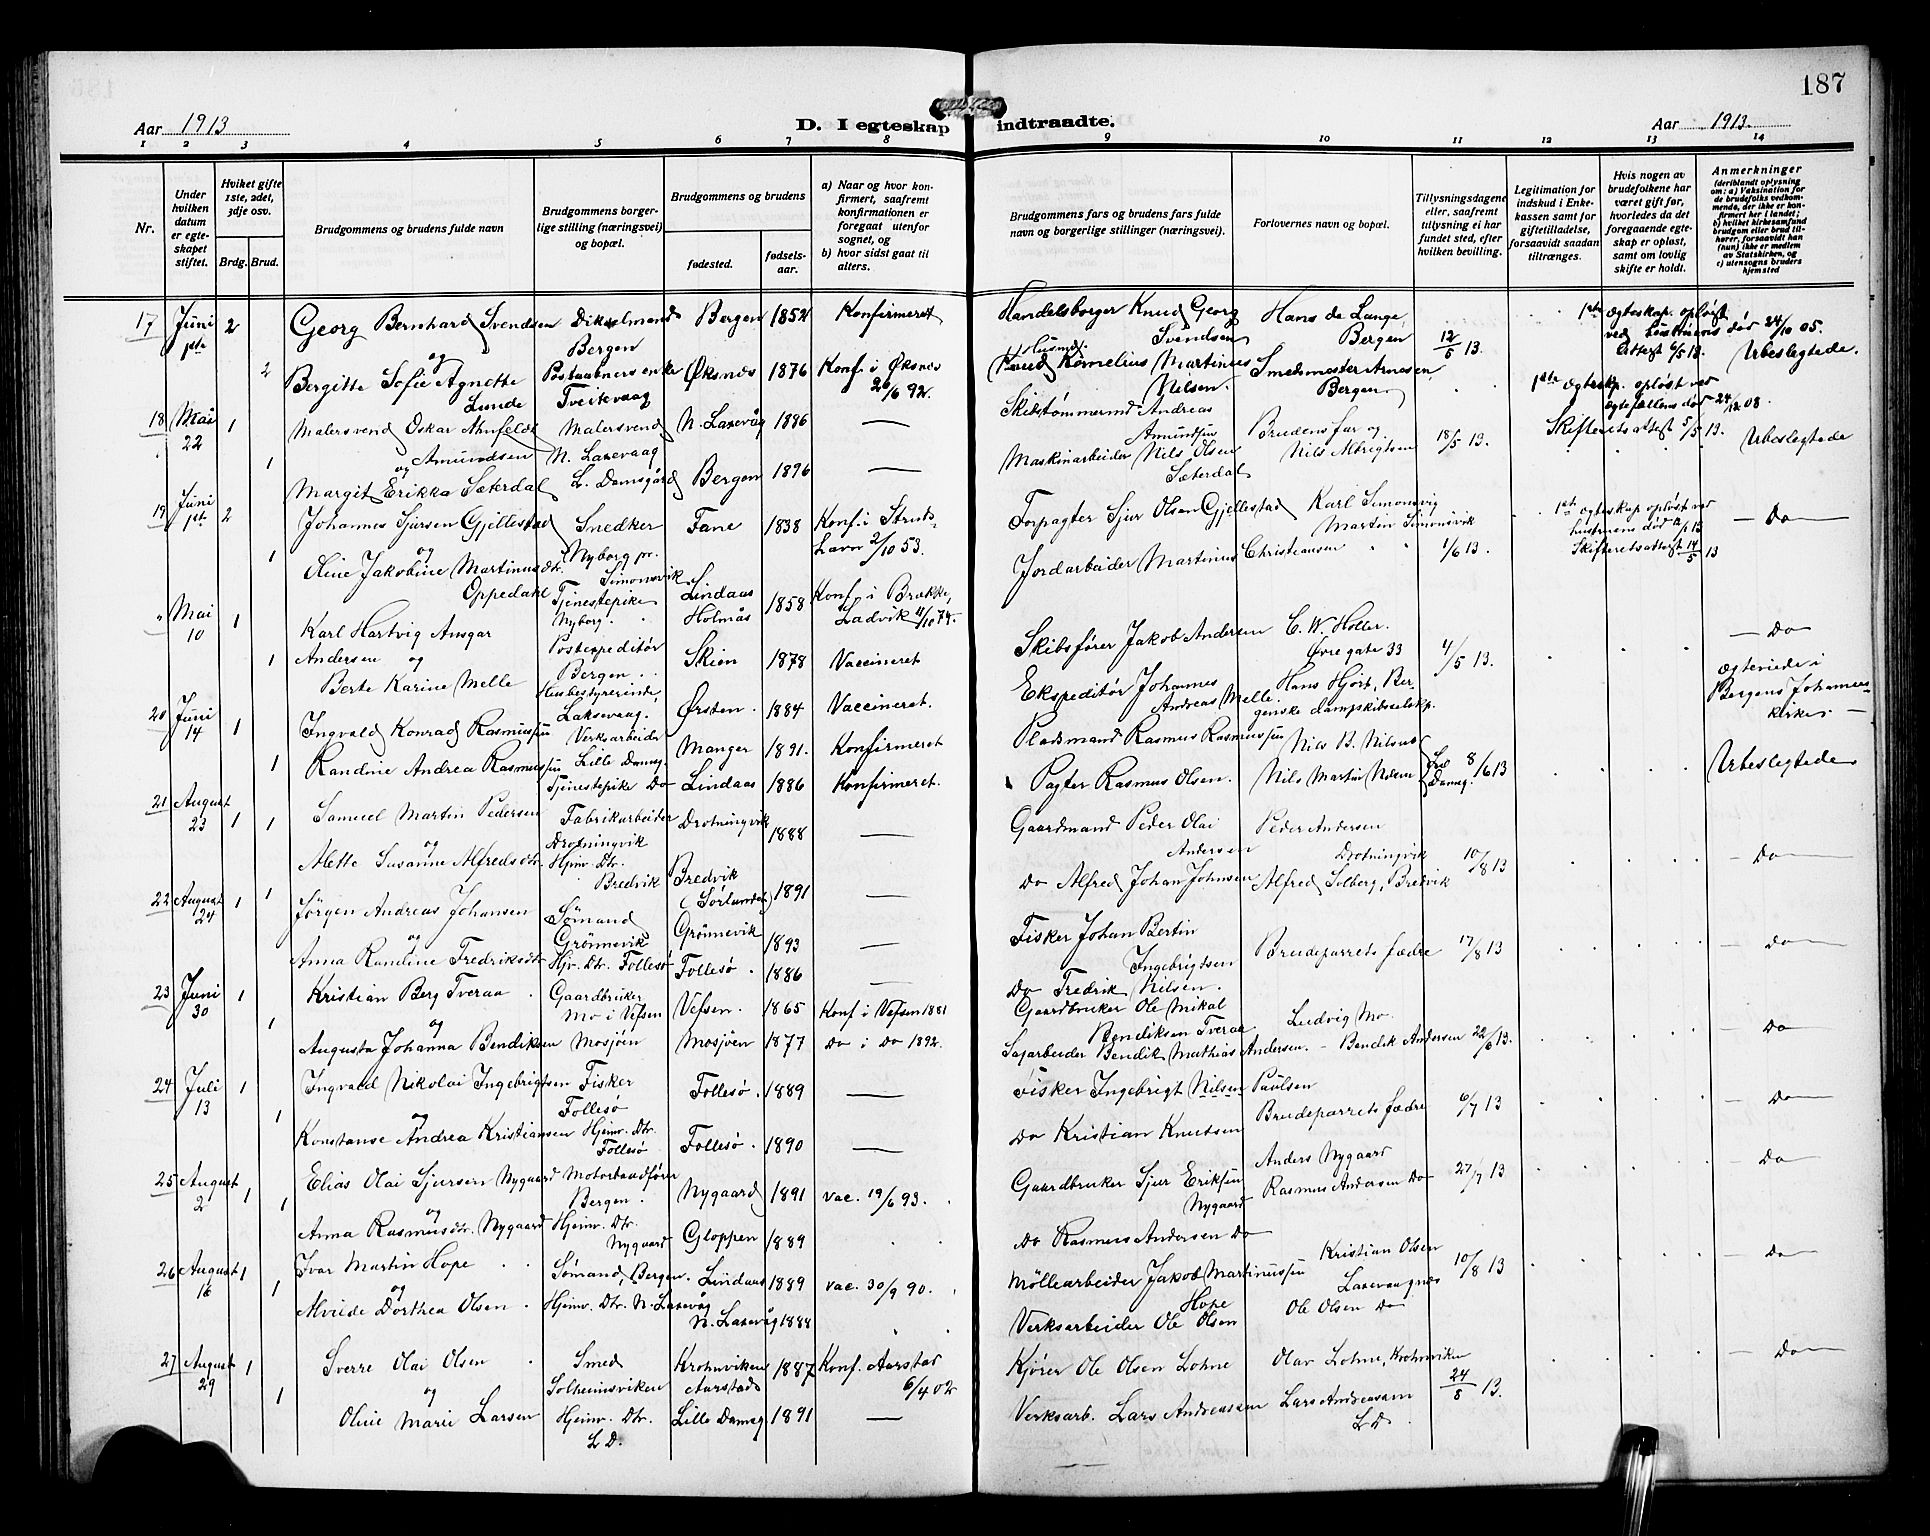 187
Aar 1913
D. I egteskap indtraadte.
Aar 1913.
1 2 3 4 5 6 7 8 9 10 11 12 13 14
Nr.
Under hvilken datum er egteskapet stiftet.
Hvilket gifte 1ste, 2det, 3dje osv.
Brdg. Brud.
Brudgommens og brudens fulde navn
Brudgommens borgerlige stilling (næringsvei) og bopæl.
Brudgommens og brudens
fødested.
fødselsaar.
a) Naar og hvor konfirmert, saafremt konfirmationen er foregaat utenfor sognet, og
b) hvor sidst gaat til alters.
Brudgommens fars og brudens fars fulde navn og borgerlige stillinger (næringsvei).
Forlovernes navn og bopæl.
Tillysningsdagene eller, saafremt tillysning ei har fundet sted, efter hvilken bevilling.
Legitimation for indskud i Enkekassen samt for giftetilladelse, forsaavidt saadan tiltrænges.
Hvis nogen av brudefolkene har været gift før, hvorledes da det foregaaende egteskap er opløst, samt om lovlig skifte er holdt.
Anmerkninger
(deriblandt oplysning om: a) Vaksination for de brudefolks vedkommende, der ikke er konfirmert her i landet; b) hvilket kirkesamfund brudgom eller brud tilhører, forsaavidt han (hun) ikke er medlem av Statskirken, og c) utensogns bruders hjemsted
17 Juni 1ste 2 Georg Bernhard Svendsen Bergen Bergen 1852 Konfirmeret Handelsborger Knud Georg Svendsen Hans de Lange Bergen 12/5 13. 1ste egteskap opløst ved hustruens død 24/10 05. Attest 6/5 13. Ubeslegtede.
og
2 Bergitte Sofie Agnette Lunde Postaabnerenke Tveitevaag Øksnes 1876 Konf. i Øksnes 26/6 92. Husmd. Knud Kornelius Martinus Nilsen. Smedmester Arnesen, Bergen 1ste egtesk. opløst ved egtefællens død 24/12 08. Skifteretsattest 5/5 13.
18 Mai 22 1 Malersvend Oskar Ahnfeldt Amundsen Malersvend N. Laxevaag N. Laxevåg 1896 — Skibtømmermd Andreas Amundsen Brudens far og Nils Albrigtsen 18/5 13. Ubeslegtede
og
1 Margit Erikka Sæterdal L. Damsgård Bergen 1896 — Maskinarbeider Nils Olsen Sæterdal
19 Juni 1ste 2 Johannes Sjursen Gjellestad Snedker Nyborg pr. Simonsvik Fane 1838 Konf. i Strudshavn 2/10 53. Forpagter Sjur Olsen Gjellestad Karl Simonsvig Martin Simonsvik 1/6 13. 1ste egteskap opløst ved hustruens død Skifteretsattest 14/5 13 — Do —
og
1 Oline Jakobine Martinusdtr. Oppedahl Tjenestepike Nyborg Lindaas Holmås 1858 Konf. i Brekke, Ladvik 11/10 74. Jordarbeider Martinus Christiansen
" Mai 10 1 Karl Hartvig Ansgar Andersen Postexpeditör Bergen Skien 1878 Vaccineret Skibsfører Jakob Andersen C. W. Holler. Øvregate 33 4/5 13. — Do
og
1 Berte Karine Melle Husbestyrerinde Laksevaag. Ørsten 1884 Vaccineret. Ekspeditör Johannes Andreas Melle Hans Hjort, Bergenske dampskibsselskp. Egteviede i Bergens Johanneskirke. —
20 Juni 14 1 Ingvald Konrad Rasmussen Verksarbeider Lille Damsg. Manger 1891. Konfirmeret Pladsmand Rasmus Rasmussen Nils B. Nilsen 8/6 13 Ubeslegtede
1 Randine Andrea Rasmussen Tjenestepike Do Lindaas 1886 Konfirmeret. Pagter Rasmus Olsen. Nils Martin Nilsen Damsg.
21 August 23 1 1 Samuel Martin Pedersen Fabrikarbeider Drotningvik Drotningvik 1888 — Gaardmand Peder Olai Andersen Peder Andersen Drotningvik 10/8 13 — Do —
og
Mette Susanne Alfredsdtr. Hjemv. Dtr. Bredvik Bredvik (Sørlandet) 1891 — Do Alfred Johan Johnsen Alfred Solberg, Bredvik
22 August 24 1 1 Jørgen Andreas Johansen Sømand Grönnevik Grönnevik 1893 — Fisker Johan Bertin Ingebrigtsen Brudeparrets fædre 17/8 13 — Do —
og
Anna Randine Fredriksdtr Hjv. Dtr. Follesø Follesø 1886 — Do Fredrik Nilsen.
23 Juni 30 1 Kristian Berg Tveraa Gaardbruker Mo i Vefsen Vefsen. 1865 Konf i Vefsen 1881 Gaardbruker Ole Mikal Bendiksen Tveraa Ludvig Mo. 22/6 13. — Do
og
1 Augusta Johanna Bendiksen Mosjöen Mosjöen 1877 Do i Do 1892. Sagarbeider Bendik Mathias Andersen. — Bendik Andersen
24 Juli 13 1 Ingvald Nikolai Ingebrigtsen Fisker Follesø Follesø. 1889 — Fisker Ingebrigt Nilsen Paulsen Brudeparrets fædre 6/7 13 — Do —
og
1 Konstanse Andrea Kristiansen Hjemv. Dtr. Follesø Follesø 1890 — Do Kristian Knutsen
25 August 2 1 1 Elias Olai Sjursen Nygaard Motorbaadfører Bergen. Nygaard 1891 vac. 19/6 93. Gaardbruker Sjur Eriksen Nygaard Anders Nygaard Rasmus Andersen Do 27/7 13 Do —
og
Anna Rasmusdtr. Nygaard Hjemv. Dtr. Nygaard Gloppen 1889 Do Rasmus Andersen Do
26 August 16 1 1 Ivar Martin Hope Sømand, Bergen. Lindaas 1889 vac. 30/9 90. Möllearbeider Jakob Martinussen Hope Kristian Olsen Laxevaagnes 10/8 13 — Do —
og
Alvilde Dorthea Olsen. Hjemv. Dtr. N. Laxevåg N. Laxevåg 1888 Verksarbeider Ole Olsen Ole Olsen Do
27 August 29 1 Sverre Olai Olsen Smed Solheimsviken Krohnviken Aarstad 1887 Konf. Aarstad 6/4 02 Kjører Ole Olsen Lohne Olav Lohne, Krohnviken 24/8 13. — Do —
og
1 Oline Marie Larsen Hjemv. Dtr. L D. Lille Damsg 1891 — Verksarb. Lars Andreassen Lars Andreassen L D.